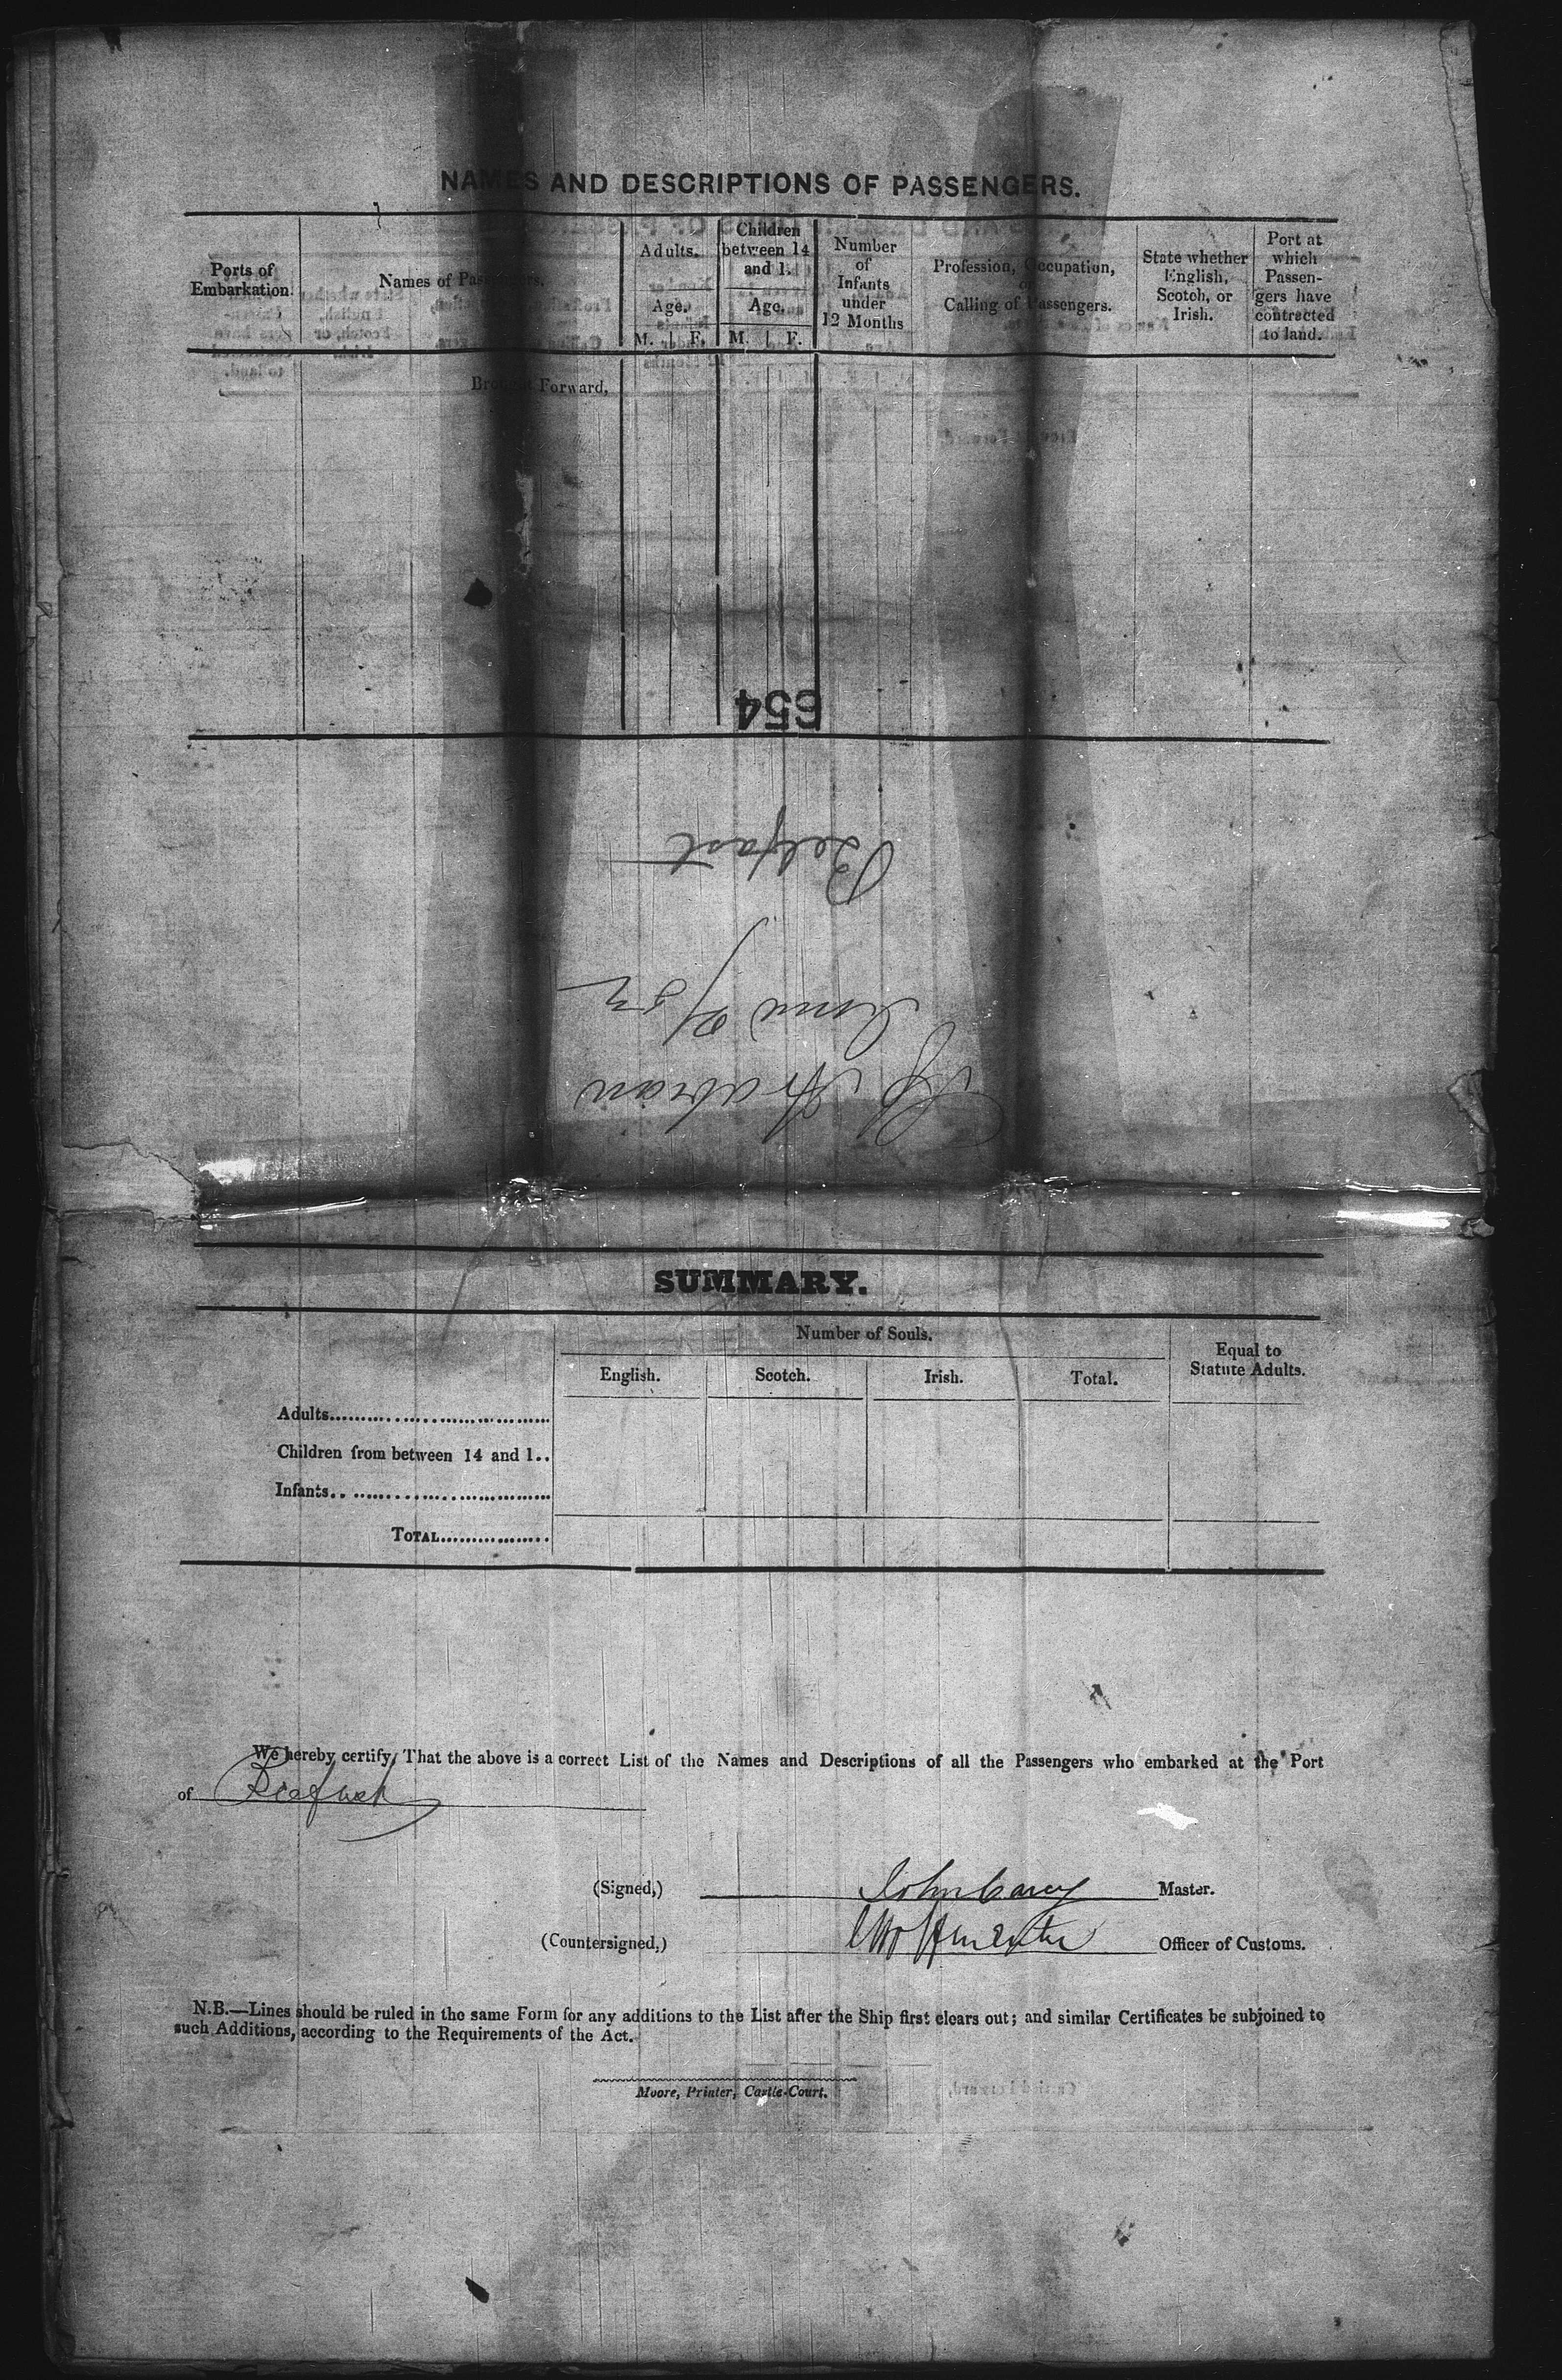 NAMES AND DESCRIPTIONS OF PASSENGERS.
Ports of Embarkation.
Names of Passengers.
Adults.
Age.
M. F.
Children between 14 and 1.
Age.
M. F.
Number of Infants under 12 Months
Profession, Occupation, or Calling of Passengers.
State whether English, Scotch, or Irish.
Port at which Passen-gers have contracted to land.
Brought Forward,
654
Belfast
June
SUMMARY.
Number of Souls.
Equal to Statute Adults.
English. Scotch. Irish. Total.
Adults
Children from between 14 and 1..
Infants
TOTAL
We hereby certify, That the above is a correct List of the Names and Descriptions of all the Passengers who embarked at the Port
of Belfast
(Signed,) John Carey Master.
(Countersigned,) Officer of Customs.
N.B.—Lines should be ruled in the same Form for any additions to the List after the Ship first clears out; and similar Certificates be subjoined to
such Additions, according to the Requirements of the Act.
Moore, Printer, Castle-Court.